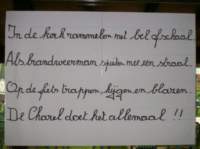 In de kerk rammelen met bel of schaal
Als brandweerman spuiten met een straal
Op de fiets trappen krijgen en blaren.
De Charel doet het allemaal !!